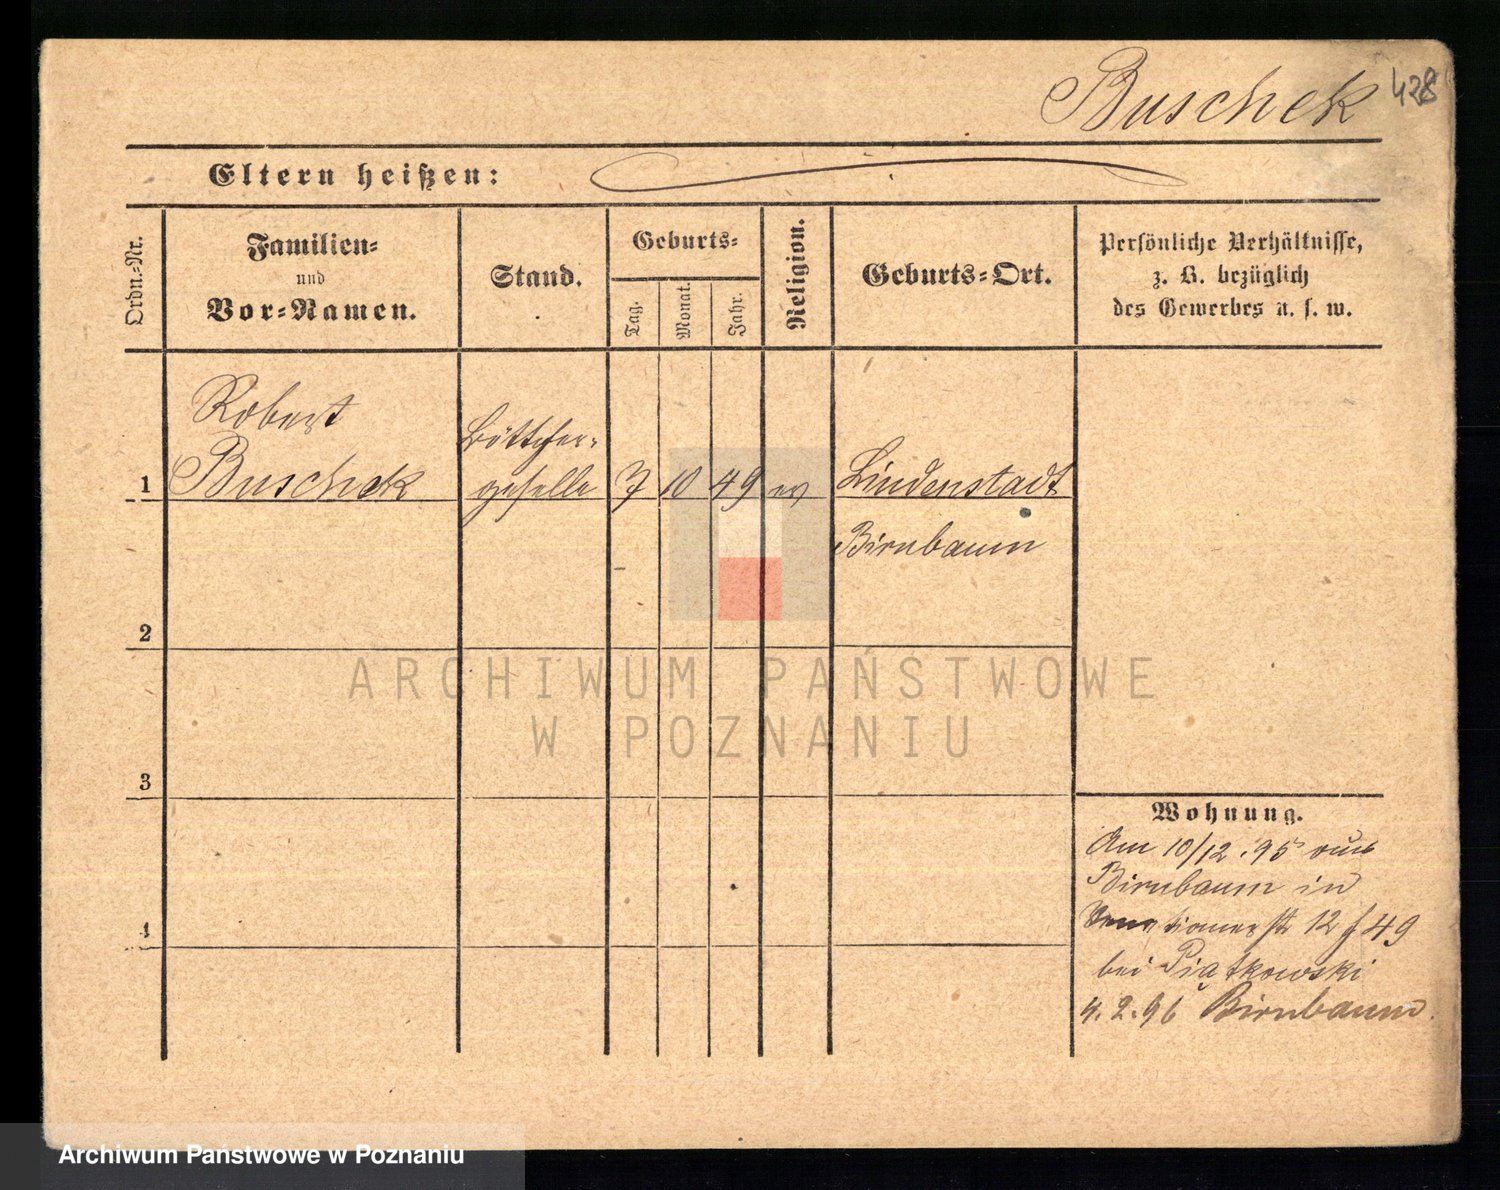 Buschek 428
Eltern heißen:
Ordn.-Nr.
Familien-
und
Vor-Namen.
Stand.
Geburts-
Tag.
Monat.
Jahr.
Religion.
Geburts-Ort.
Persönliche Verhältnisse,
z. B. bezüglich
des Gewerbes u. s. w.
Robert
Buschek
Böttcher-
geselle
1
7
10
49
ev
Lindenstadt
Birnbaum
2
3
4
Wohnung.
Am 10/12.95 aus
Birnbaum in
12 f 49
bei Piątkowski
4.2.96 Birnbaum.
ARCHIWUM PAŃSTWOWE
W POZNANIU
Archiwum Państwowe w Poznaniu